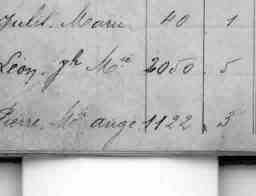 Jules. Marie 40 1
Léon. jh Mie 2050 5
Pierre. Mie ange 1122 3